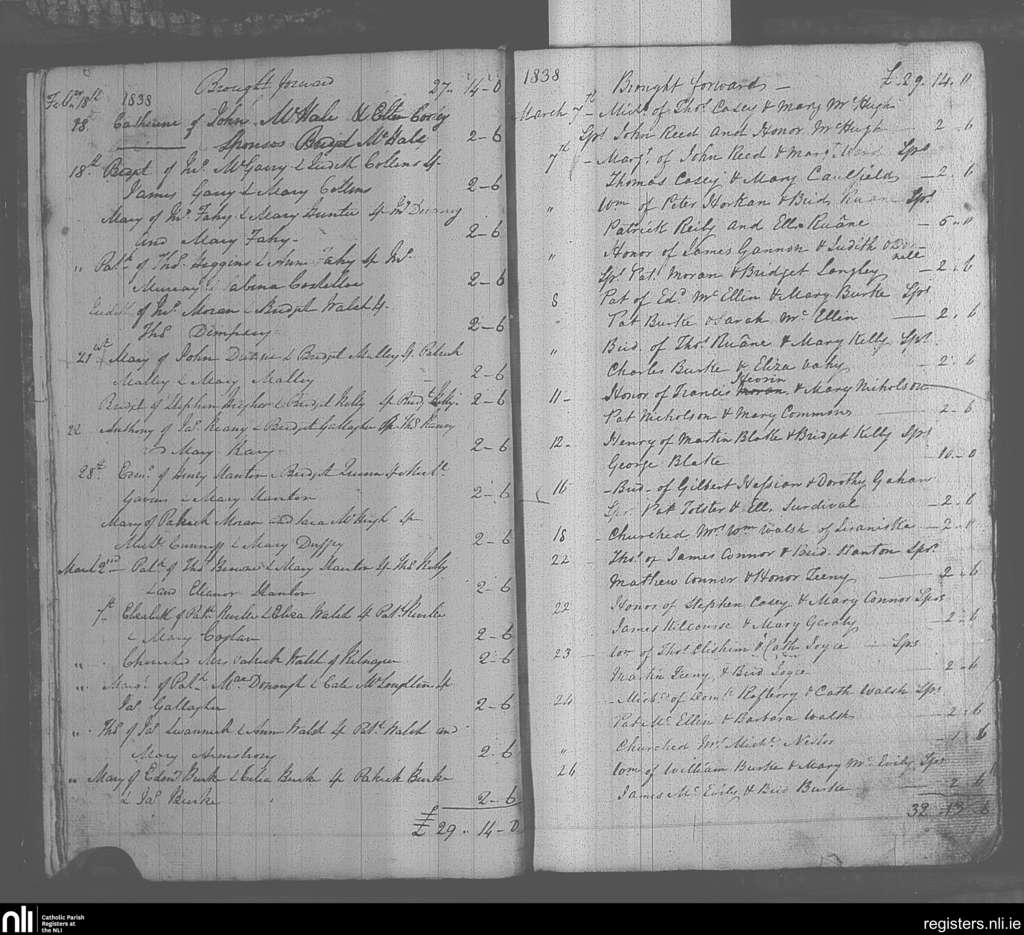 Brought forward 27-14-0
Feb. 18th 1838
18th Catherine of John McHale & Ellen
Sponsors Bridget McHale 2-6
18th Bridget of Jno. McGarry & Judith Collins Sp.
James Garry & Mary Collins 2-6
Mary of Jno. Fahy & Mary Hunter Sp. Jno.
and Mary Fahy 2-6
" Patk. of Thos. Higgins & Ann Fahy Sp. Jno.
Murray & Sabina Costelloe 2-6
Judith of Jno. Moran & Bridget Walsh Sp.
Thos. Dempsey 2-6
21st Mary of John & Bridget Malley Sp. Patrick
Malley & Mary Malley 2-6
Bridget of Stephen & Bridget Kelly Sp. Brid. Kelly 2-6
22 Anthony of Jas. Keany & Bridget Gallagher Sp. Thos.
& Mary 2-6
28th of Henry Stanton & Bridget Quinn Sp.
Gavan & Mary Stanton 2-6
Mary of Patrick Moran and McHugh Sp.
Michl. & Mary Duffey 2-6
March 2nd Patk. of Thos. & Mary Stanton Sp. Thos. Kelly
and Eleanor Stanton 2-6
7th Elizabeth of Patk. & Eliza Walsh Sp. Patk.
& Mary Costlow 2-6
" Churched Mrs Patrick Walsh of 2-6
" Margt. of Patk. MacDonough & Cate McLoughlin Sp.
Jas. Gallagher 2-6
" Thos. of Jas. & Ann Walsh Sp. Patk. Walsh and
Mary Armstrong 2-6
" Mary of Edmd. Burke & Celia Burke Sp. Patrick Burke
& Jas. Burke 2-6
£ 29-14-0
1838 Brought forward £ 29.14.11
March 7th - Michl. of Thos. Casey & Mary McHugh
Sprs John Reed and Honor McHugh 2-6
7th - Margt. of John Reed & Margt. Sprs
Thomas Casey & Mary Caulfield 2-6
" Wm of Peter Horkan & Brid. Ruane Sprs
Patrick Reily and Ellen Ruane 5-11
" Honor of James Gannon & Judith O'Donnell
Sprs Pat. Moran & Bridget Langley 2-6
8 Pat of Edd. McEllen & Mary Burke Sprs
Pat Burke & Sarah McEllen 2-6
" Brid. of Thos. Ruane & Mary Kelly Sprs
Charles Burke & Eliza Vahy 2-6
11 - Honor of Francis Moran & Mary Nicholson
Pat Nicholson & Mary Commons 2-6
12 - Henry of Martin Blake & Bridget Kelly Sprs
George Blake 10-0
16 - Brid. of Gilbert Hession & Dorothy Gahan
Sprs Pat Tolster & Ell. Surdival 2-6
18 - Churched Mrs Wm Walsh of 2-11
22 Thos. of James Connor & Brid. Stanton Sprs.
Mathew Connor & Honor Feeny 2-6
22 Honor of Stephen Casey & Mary Connor Sprs
James Kilcourse & Mary Geraty 2-6
23 Wm of Thos. Clisham & Cath Joyce Sprs
Martin Feeny & Brid Joyce 2-6
24 - Michl. of Domk. Rafterry & Cath Walsh Sprs
Pat McEllen & Barbara Walsh 2-6
" Churched Mrs Michl. Nestor 1-6
26 Wm of William Burke & Mary McEvily Sprs
James McEvily & Brid Burke 2-6
32.13.6
nli Catholic Parish
Registers at
the NLI
registers.nli.ie